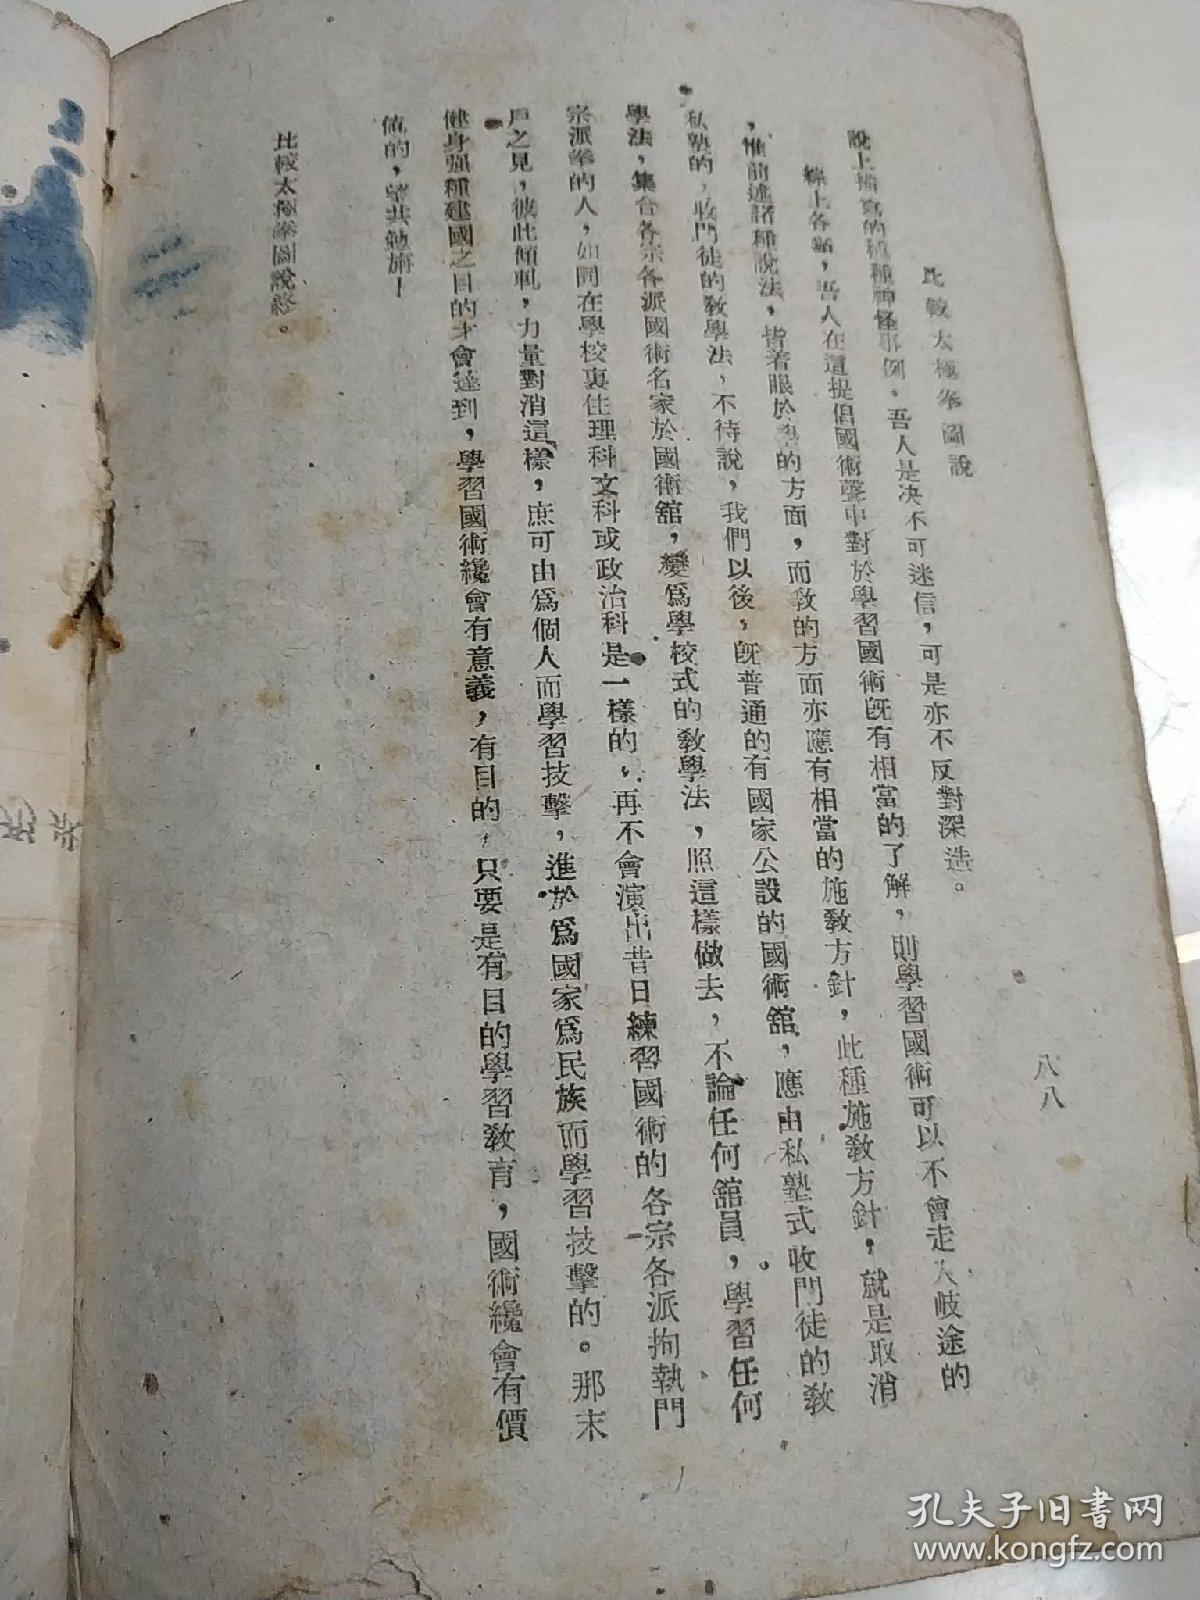 比較太極拳圖說
八八
說上描寫的種種神怪事例，吾人是決不可迷信，可是亦不反對深造。
綜上各點，吾人在這提倡國術聲中對於學習國術旣有相當的了解，則學習國術可以不會走入岐途的
，惟前述諸種說法，皆着眼於學的方面，而敎的方面亦應有相當的施敎方針，此種施敎方針，就是取消
私塾的，收門徒的敎學法，不待說，我們以後，旣普通的有國家公設的國術舘，應由私塾式收門徒的敎
學法，集合各宗各派國術名家於國術舘，變爲學校式的敎學法，照這樣做去，不論任何舘員，學習任何
宗派拳的人，如同在學校裏住理科文科或政治科是一樣的，再不會演出昔日練習國術的各宗各派拘執門
戶之見，彼此傾軋，力量對消這樣，庶可由爲個人而學習技擊，進於爲國家爲民族而學習技擊的。那末
健身强種建國之目的才會達到，學習國術纔會有意義，有目的，只要是有目的學習敎育，國術纔會有價
値的，望共勉旃！
比較太極拳圖說終。
孔夫子旧书网
www.kongfz.com